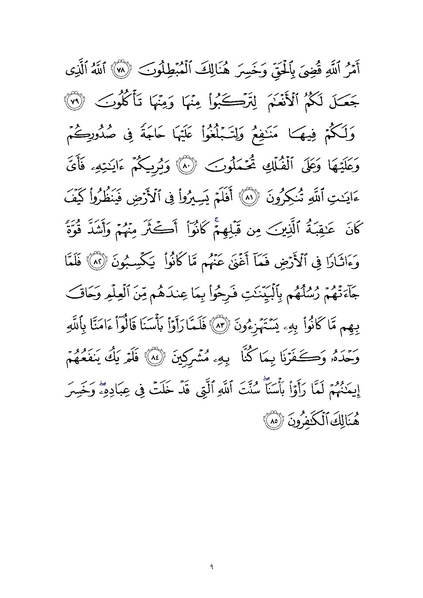 أَمْرُ ٱللَّهِ قُضِىَ بِٱلْحَقِّ وَخَسِرَ هُنَالِكَ ٱلْمُبْطِلُونَ ٧٨ ٱللَّهُ ٱلَّذِى
جَعَلَ لَكُمُ ٱلْأَنْعَٰمَ لِتَرْكَبُوا۟ مِنْهَا وَمِنْهَا تَأْكُلُونَ ٧٩
وَلَكُمْ فِيهَا مَنَٰفِعُ وَلِتَبْلُغُوا۟ عَلَيْهَا حَاجَةً فِى صُدُورِكُمْ
وَعَلَيْهَا وَعَلَى ٱلْفُلْكِ تُحْمَلُونَ ٨٠ وَيُرِيكُمْ ءَايَٰتِهِۦ فَأَىَّ
ءَايَٰتِ ٱللَّهِ تُنكِرُونَ ٨١ أَفَلَمْ يَسِيرُوا۟ فِى ٱلْأَرْضِ فَيَنظُرُوا۟ كَيْفَ
كَانَ عَٰقِبَةُ ٱلَّذِينَ مِن قَبْلِهِمْ ۚ كَانُوٓا۟ أَكْثَرَ مِنْهُمْ وَأَشَدَّ قُوَّةً
وَءَاثَارًا فِى ٱلْأَرْضِ فَمَآ أَغْنَىٰ عَنْهُم مَّا كَانُوا۟ يَكْسِبُونَ ٨٢ فَلَمَّا
جَآءَتْهُمْ رُسُلُهُم بِٱلْبَيِّنَٰتِ فَرِحُوا۟ بِمَا عِندَهُم مِّنَ ٱلْعِلْمِ وَحَاقَ
بِهِم مَّا كَانُوا۟ بِهِۦ يَسْتَهْزِءُونَ ٨٣ فَلَمَّا رَأَوْا۟ بَأْسَنَا قَالُوٓا۟ ءَامَنَّا بِٱللَّهِ
وَحْدَهُۥ وَكَفَرْنَا بِمَا كُنَّا بِهِۦ مُشْرِكِينَ ٨٤ فَلَمْ يَكُ يَنفَعُهُمْ
إِيمَٰنُهُمْ لَمَّا رَأَوْا۟ بَأْسَنَا ۖ سُنَّتَ ٱللَّهِ ٱلَّتِى قَدْ خَلَتْ فِى عِبَادِهِۦ ۖ وَخَسِرَ
هُنَالِكَ ٱلْكَٰفِرُونَ ٨٥
٩